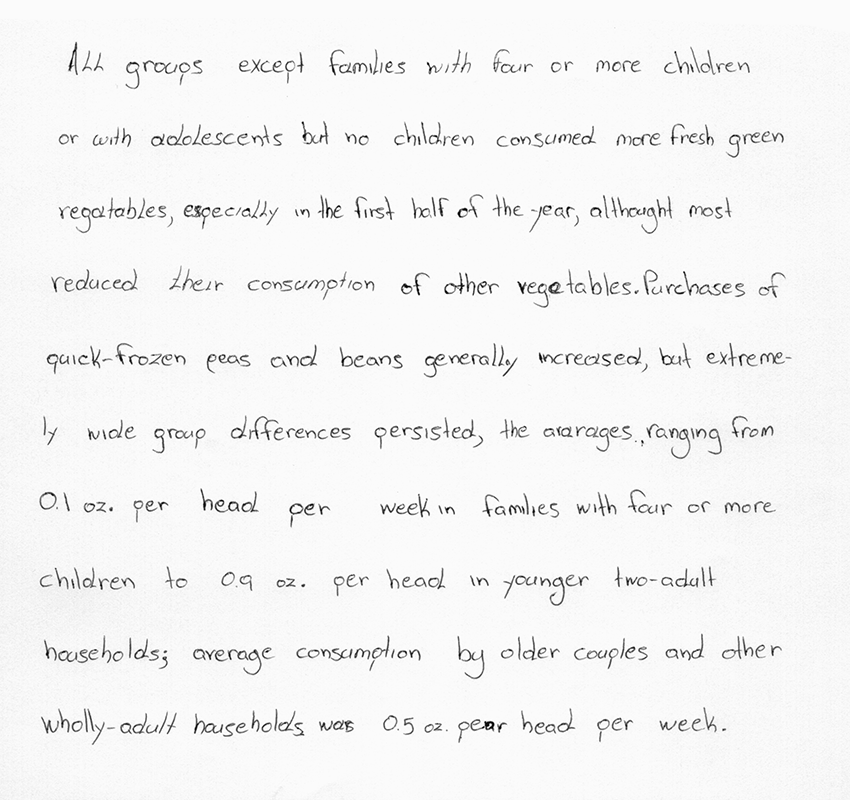 All groups except families with four or more children
or with adolescents but no children consumed more fresh green
regatables, especially in the first half of the year, althought most
reduced their consumption of other vegetables. Purchases of
quick-frozen peas and beans generally increased, but extreme-
ly wide group differences persisted, the ararages., ranging from
0.1 oz. per head per week in families with four or more
children to 0.9 oz. per head in younger two-adult
households; average consumption by older couples and other
wholly-adult households was 0.5 oz. pear head per week.